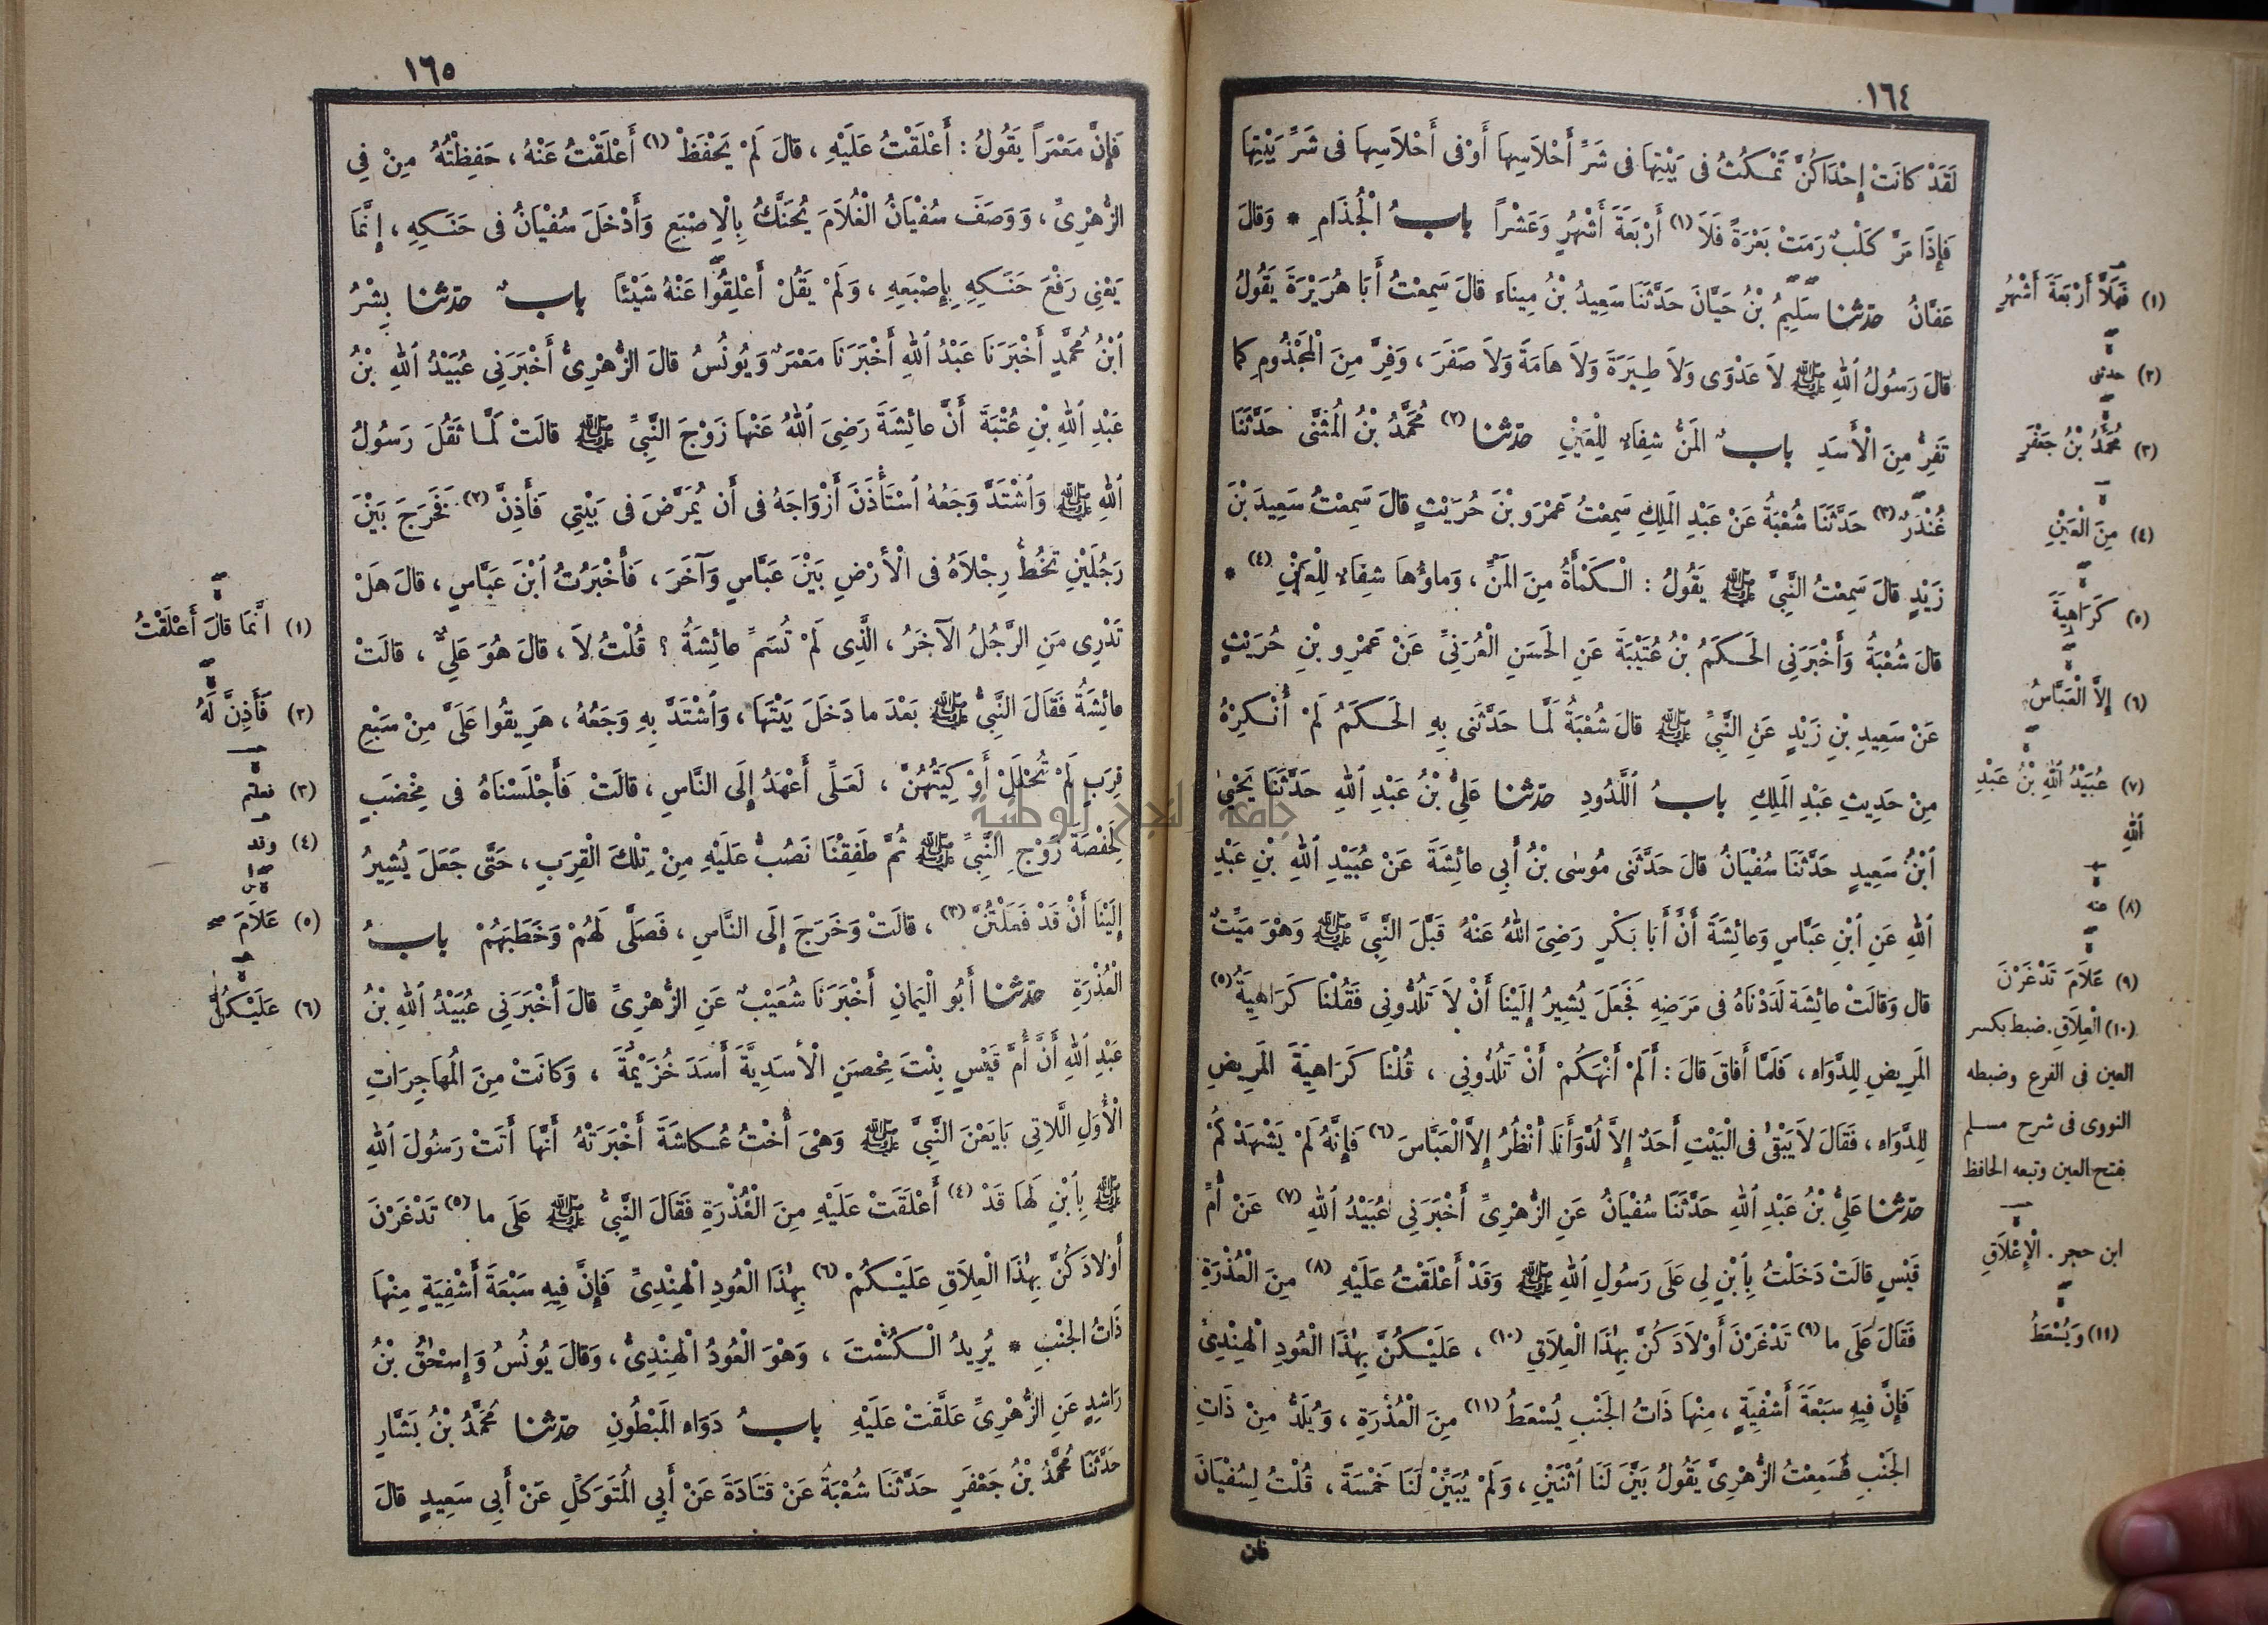 ١٦٤
لَقَدْ كانَتْ إِحْدَاكُنَّ تَمْكُثُ فى بَيْتِهَا فى شَرِّ أَحْلاَسِهَا أَوْ فى أَحْلاَسِهَا فى شَرِّ بَيْتِهَا
فَإِذَا مَرَّ كَلْبٌ رَمَتْ بَعْرَةً فَلاَ (١) أَرْبَعَةَ أَشْهُرٍ وَعَشْراً باب الْجُذَامِ * وَقالَ
عَفَّانُ حدّثنا سَلِيمُ بْنُ حَيَّانَ حَدَّثَنَا سَعِيدُ بْنُ مِينَاء قالَ سَمِعْتُ أَبَا هُرَيْرَةَ يَقُولُ
قالَ رَسُولُ اللهِ ﷺ لاَ عَدْوَى وَلاَ طِيَرَةَ وَلاَ هامَةَ وَلاَ صَفَرَ ، وَفِرَّ مِنَ الْمَجْذُومِ كما
تَفِرُّ مِنَ الْأَسَدِ باب الَمَنُّ شِفَاء لِلْعَيْنِ حدّثنا (٢) مُحَمَّدُ بْنُ الُمثَنَّى حَدَّثَنَا
غُنْدَرٌ (٣) حَدَّثَنَا شُعْبَةُ عَنْ عَبْدِ الَملِكِ سَمِعْتُ عَمْرَو بْنَ حُرَيْثٍ قالَ سَمِعْتُ سَعِيدَ بْنَ
زَيْدٍ قالَ سَمِعْتُ النَّبِيَّ ﷺ يَقُولُ : الْكَمْأَةُ مِنَ الَمَنِّ ، وَماؤُهَا شِفَاء لِلْعَيْنِ (٤) *
قالَ شُعْبَةُ وَأَخْبَرَنِى الحَكَمُ بْنُ عُتَيْبَةَ عَنِ الحَسَنِ الْعُرَنِىِّ عَنْ عَمْرِو بْنِ حُرَيْثٍ
عَنْ سَعِيدِ بْنِ زَيْدٍ عَنِ النَّبِيِّ ﷺ قالَ شُعْبَةُ لَمَّا حَدَّثَنِى بِهِ الحَكَمُ لَمْ أُنْكِرْهُ
مِنْ حَدِيثِ عَبْدِ الَملِكِ باب اللَّدُودِ حدّثنا عَلِيُّ بْنُ عَبْدِ اللهِ حَدَّثَنَا يَحْيىٰ
ابْنُ سَعِيدٍ حَدَّثَنَا سُفْيَانُ قالَ حَدَّثَنى مُوسٰى بْنُ أَبِى عائِشَةَ عَنْ عُبَيْدِ اللهِ بْنِ عَبْدِ
اللهِ عَنِ ابْنِ عَبَّاسٍ وَعائِشَةَ أَنَّ أَبَا بَكْرٍ رَضِىَ اللهُ عَنْهُ قَبَّلَ النَّبِيَّ ﷺ وَهْوَ مَيِّتٌ
قال وَقالَتْ عائِشَة لَدَدْنَاهُ فى مَرَضِهِ فَجَعَلَ يُشِيرُ إِلَيْنَا أَنْ لاَ تَلُدُّونِى فَقُلْنَا كَرَاهِيَةُ (٥)
الَمرِيضِ لِلدَّوَاء ، فَلَمَّا أَفاقَ قالَ : أَلَمْ أَنْهَكُمْ أَنْ تَلُدُّونِى ، قُلْنَا كَرَاهِيَةَ الَمرِيضِ
لِلدَّوَاء ، فَقَالَ لاَ يَبْقٰى فى الْبَيْتِ أَحَدٌ إِلاَّ لُدَّ وَأَنَا أَنْظُرُ إِلاَّ الْعَبَّاسَ (٦) فَإِنَّهُ لَمْ يَشْهَدْكُمْ
حدّثنا عَلِيُّ بْنُ عَبْدِ اللهِ حَدَّثَنَا سُفْيَانُ عَنِ الزُّهْرِىِّ أَخْبَرَنِى عُبَيْدُ اللهِ (٧) عَنْ أُمِّ
قَيْسٍ قالَتْ دَخَلْتُ بِابْنٍ لِى عَلَى رَسُولِ اللهِ ﷺ وَقَدْ أَعْلَقْتُ عَلَيْهِ (٨) مِنَ الْعُذْرَةِ
فَقَالَ عَلَى ما (٩) تَدْغَرْنَ أَوْلاَدَكُنَّ بِهٰذَا الْعِلاَقِ (١٠) ، عَلَيْكُنَّ بِهٰذَا الْعُودِ الْهِنْدِىِّ
فَإِنَّ فِيهِ سَبْعَةَ أَشْفِيَةٍ ، مِنْهَا ذَاتُ الجَنْبِ يُسْعَطُ (١١) مِنَ الْعُذْرَةِ ، وَيُلَدُّ مِنْ ذَاتِ
الجَنْبِ فَسَمِعْتُ الزُّهْرِىَّ يَقُولُ بَيَّنَ لَنَا اثْنَيْنِ ، وَلَمْ يُبَيِّنْ لَنَا خَمْسَةً ، قُلْتُ لِسُفْيَانَ
فان
(١) فَهَلاَّ أَرْبَعَةَ أَشْهُرٍ
(٢) حدثنى
(٣) مُحَمَّدُ بْنُ جَعْفَرٍ
(٤) مِنَ الْعَيْنِ
(٥) كَرَاهِيَةَ
(٦) إِلاَّ الْعَبَّاسُ
(٧) عُبَيْدُ اللهِ بْنُ عَبْدِ
اللهِ
(٨) عنه
(٩) عَلاَمَ تَدْغَرْنَ
(١٠) الْعِلاَقِ. ضبط بكسر
العين فى الفرع وضبطه
النووى فى شرح مسلم
بفتح العين وتبعه الحافظ
ابن حجر . الْإِعْلاَقِ
(١١) وَيُسْعَطُ
١٦٥
فَإِنَّ مَعْمَراً يَقُولُ : أَعْلَقْتُ عَلَيْهِ ، قالَ لَمْ يَحْفَظْ (١) أَعْلَقْتُ عَنْهُ ، حَفِظْتُهُ مِنْ فِى
الزُّهْرِىِّ ، وَوَصَفَ سُفْيَانُ الْغُلاَمَ يُحَنَّكُ بِالْإِصْبَعِ وَأَدْخَلَ سُفْيَانُ فى حَنَكِهِ ، إِنَّمَا
يَعْنِى رَفْعَ حَنَكِهِ بِإِصْبَعِهِ ، وَلَمْ يَقُلْ أَعْلِقُوا عَنْهُ شَيْئًا باب حدّثنا بِشْرُ
ابْنُ مُحَمَّدٍ أَخْبَرَنَا عَبْدُ اللهِ أَخْبَرَنَا مَعْمَرٌ وَيُونُسُ قالَ الزُّهْرِىُّ أَخْبَرَنِى عُبَيْدُ اللهِ بْنُ
عَبْدِ اللهِ بْنِ عُتْبَةَ أَنَّ عائِشَةَ رَضِىَ اللهُ عَنْهَا زَوْجَ النَّبِيِّ ﷺ قالَتْ لَمَّا ثَقُلَ رَسُولُ
اللهِ ﷺ وَاشْتَدَّ وَجَعُهُ اسْتَأْذَنَ أَزْوَاجَهُ فى أَن يُمَرَّضَ فى بَيْتِى فَأَذِنَّ (٢) فَخَرَجَ بَيْنَ
رَجُلَيْنِ تَخُطُّ رِجْلاَهُ فى الْأَرْضِ بَيْنَ عَبَّاسٍ وَآخَرَ ، فَأَخْبَرْتُ ابْنَ عَبَّاسٍ ، قالَ هَلْ
تَدْرِى مَنِ الرَّجُلُ الآخَرُ ، الَّذِى لَمْ تُسَمِّ عائِشَةُ ؟ قُلْتُ لاَ ، قالَ هُوَ عَلِيٌّ ، قالَتْ
عائِشَةُ فَقَالَ النَّبِيُّ ﷺ بَعْدَ ما دَخَلَ بَيْتَهَا ، وَاشْتَدَّ بِهِ وَجَعُهُ ، هَرِيقُوا عَلَىَّ مِنْ سَبْعِ
قِرَبٍ لَمْ تُحْلَلْ أَوْكِيَتُهُنَّ ، لَعَلِّى أَعْهَدُ إِلَى النَّاسِ ، قالَتْ فَأَجْلَسْنَاهُ فى مِخْضَبٍ
لِحَفْصَةَ زَوْجِ النَّبِيِّ ﷺ ثُمَّ طَفِقْنَا نَصُبُّ عَلَيْهِ مِنْ تِلْكَ الْقِرَبِ ، حَتَّى جَعَلَ يُشِيرُ
إِلَيْنَا أَنْ قَدْ فَعَلْتُنَّ (٣) ، قالَتْ وَخَرَجَ إِلَى النَّاسِ ، فَصَلَّى لَهُمْ وَخَطَبَهُمْ باب
الْعُذْرَةِ حدّثنا أَبُو الْيَمانِ أَخْبَرَنَا شُعَيْبٌ عَنِ الزُّهْرِىِّ قالَ أَخْبَرَنِى عُبَيْدُ اللهِ بْنُ
عَبْدِ اللهِ أَنَّ أُمَّ قَيْسٍ بِنْتَ مِحْصَنٍ الْأَسَدِيَّةَ أَسَدَ خُزَيْمَةَ ، وَكانَتْ مِنَ الُمهَاجِرَاتِ
الْأُوَلِ اللَّاتِى بَايَعْنَ النَّبِيَّ ﷺ وَهْىَ أُخْتُ عُكاشَةَ أَخْبَرَتْهُ أَنَّهَا أَتَتْ رَسُولَ اللهِ
ﷺ بِابْنٍ لَهَا قَدْ (٤) أَعْلَقَتْ عَلَيْهِ مِنَ الْعُذْرَةِ فَقَالَ النَّبِيُّ ﷺ عَلَى ما (٥) تَدْغَرْنَ
أَوْلاَدَكُنَّ بِهٰذَا الْعِلاَقِ عَلَيْكُمْ (٦) بِهٰذَا الْعُودِ الْهِنْدِىِّ فَإِنَّ فِيهِ سَبْعَةَ أَشْفِيَةٍ مِنْهَا
ذَاتُ الجَنْبِ * يُرِيدُ الْكُسْتَ ، وَهْوَ الْعُودُ الْهِنْدِىُّ ، وَقالَ يُونُسُ وَإِسْحٰقُ بْنُ
رَاشِدٍ عَنِ الزُّهْرِىِّ عَلَّقَتْ عَلَيْهِ باب دَوَاء الَمبْطُونِ حدّثنا مُحَمَّدُ بْنُ بَشَّارٍ
حَدَّثَنَا مُحَمَّدُ بْنُ جَعْفَرٍ حَدَّثَنَا شُعْبَةُ عَنْ قَتَادَةَ عَنْ أَبِى الُمتَوَكِّلِ عَنْ أَبِى سَعِيدٍ قالَ
(١) انَّمَا قالَ أَعْلَقْتُ
(٢) فَأَذِنَّ لَهُ
(٣) فعلتم
(٤) وقد
(٥) عَلاَمَ
(٦) عَلَيْكُنَّ
جامعة النجاح الوطنية